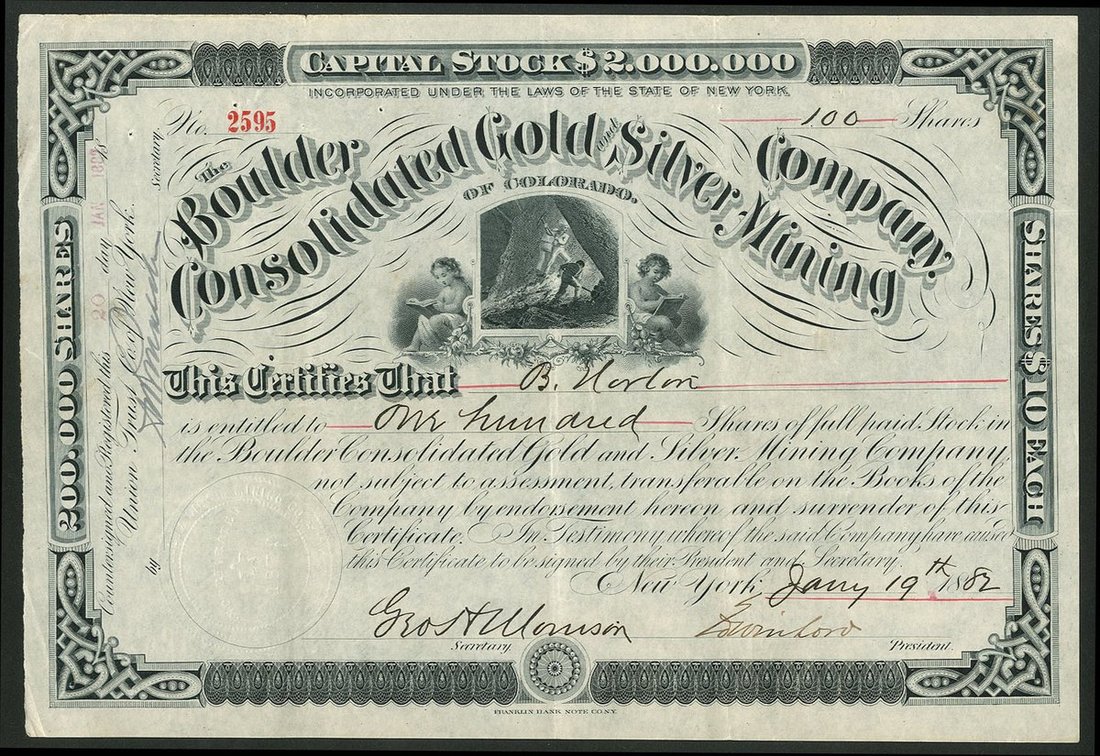 CAPITAL STOCK $2.000.000
INCORPORATED UNDER THE LAWS OF THE STATE OF NEW YORK.
No. 2595
100 Shares
The Boulder Consolidated Gold and Silver Mining Company
OF COLORADO.
This Certifies That B. Norton
is entitled to One hundred Shares of full paid Stock in
the Boulder Consolidated Gold and Silver Mining Company
not subject to assessment, transferable on the Books of the
Company by endorsement hereon and surrender of this
Certificate. In Testimony whereof the said Company have caused
this Certificate to be signed by their President and Secretary.
New York Jany 19th 1882
Geo H Morrison
Secretary
President.
FRANKLIN BANK NOTE CO. N.Y.
200.000 SHARES
SHARES $10 EACH
Countersigned and Registered this 20 day JAN. 18
Union Trust Co. of New York.
by
Secretary